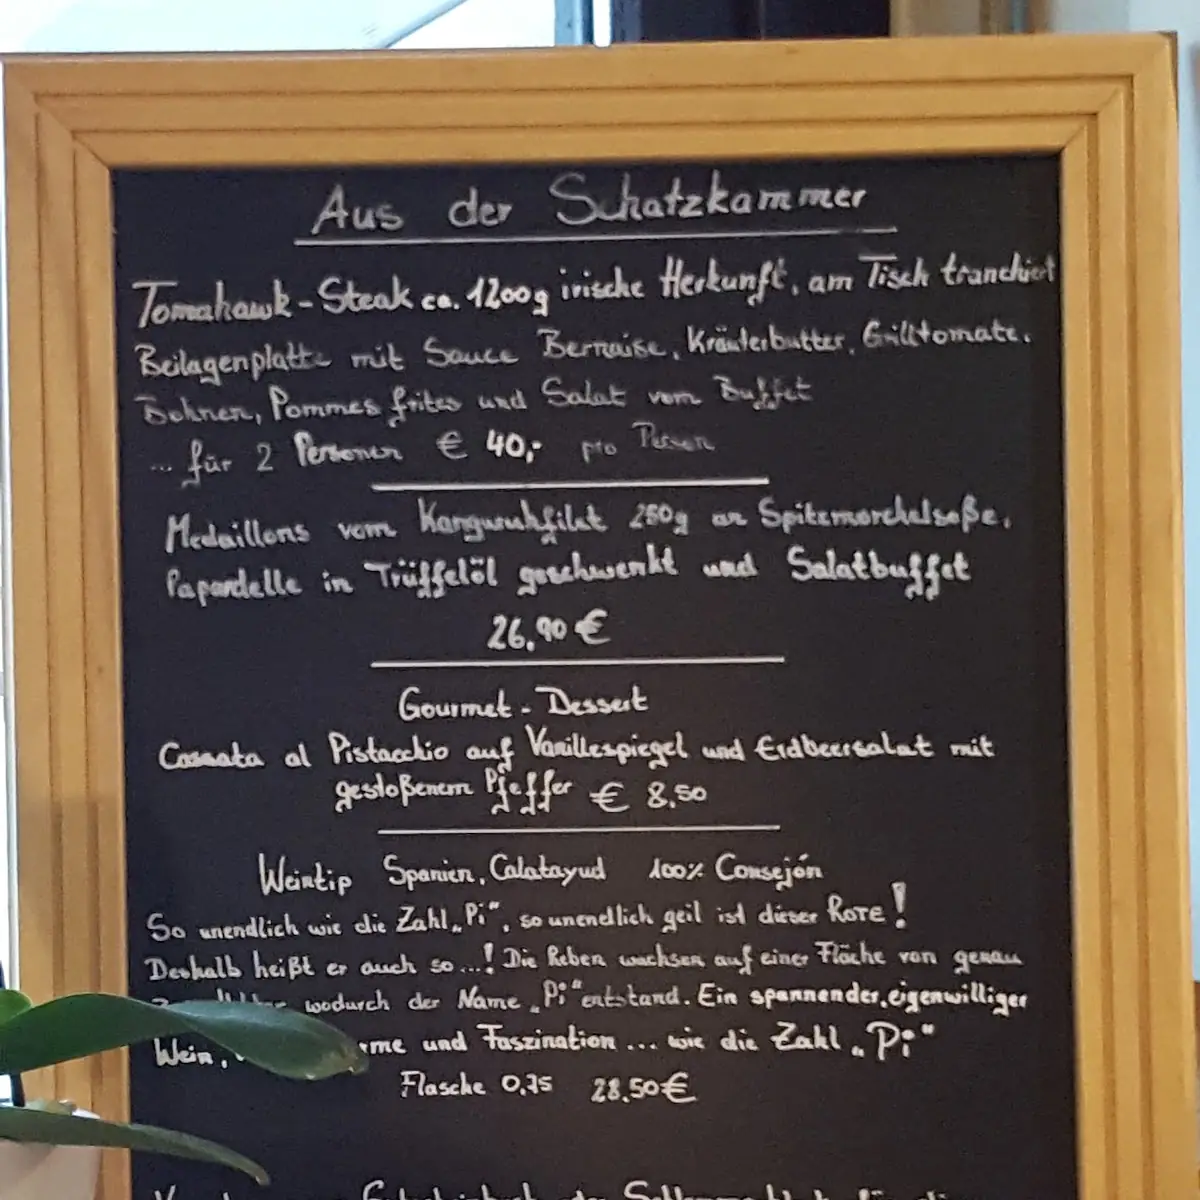 Aus der Schatzkammer
Tomahawk-Steak ca. 1200g irische Herkunft, am Tisch tranchiert
Beilagenplatte mit Sauce Bernaise, Kräuterbutter, Grilltomate,
Bohnen, Pommes frites und Salat vom Buffet
... für 2 Personen € 40,- pro Person
Medaillons vom Kanguruhfilet 250g an Spitzmorchelsoße,
Papardelle in Trüffelöl geschwenkt und Salatbuffet
26,90 €
Gourmet - Dessert
Cassata al Pistacchio auf Vanillespiegel und Erdbeersalat mit
gestoßenem Pfeffer € 8,50
Weintip Spanien, Calatayud 100% Consejón
So unendlich wie die Zahl „Pi“, so unendlich geil ist dieser Rote!
Deshalb heißt er auch so...! Die Reben wachsen auf einer Fläche von genau
wodurch der Name „Pi“ entstand. Ein spannender, eigenwilliger
Wein, und Faszination ... wie die Zahl „Pi“
Flasche 0,75 28,50€